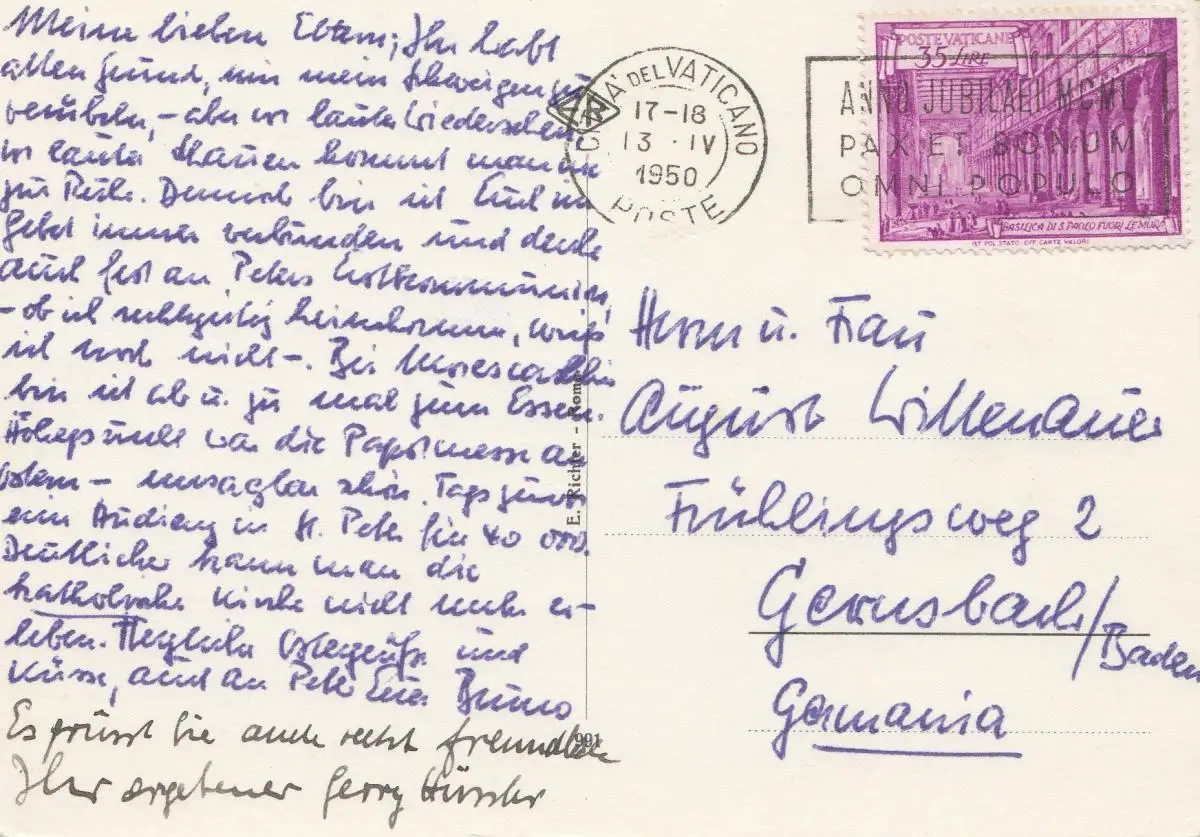 Meine lieben Eltern, Ihr habt
allen Grund, mir mein Schweigen zu
verübeln, – aber vor lauter Wiedersehen
vor lauter Schauen kommt man nie
zur Ruhe. Dennoch bin ich Euch im
Gebet immer verbunden und denke
auch fest an Peters Erstkommunion,
– ob ich rechtzeitig heimkomme, weiß
ich noch nicht –. Bei
bin ich ab u. zu mal zum Essen.
Höhepunkt war die Papstmesse an
Ostern – unsagbar schön. Tags zuvor
eine Audienz in St. Peter für 40 000.
Deutlicher kann man die
katholische Kirche nicht mehr er-
leben. Herzliche Ostergrüße und
Küsse, auch an Peter Euer Bruno
Es grüsst Sie auch recht freundlich
Ihr ergebener Georg Hüssler
E. Richter - Roma
991
CITTÀ DEL VATICANO
17-18
13 · IV
1950
POSTE
AR
ANNO JUBILAEI MCML
PAX ET BONUM
OMNI POPULO
POSTE VATICANE
35 LIRE
BASILICA DI S. PAOLO FUORI LE MURA
IST. POL. STATO-OFF. CARTE VALORI
Herrn u. Frau
August Wittenauer
Frühlingsweg 2
Gernsbach/Baden
Germania